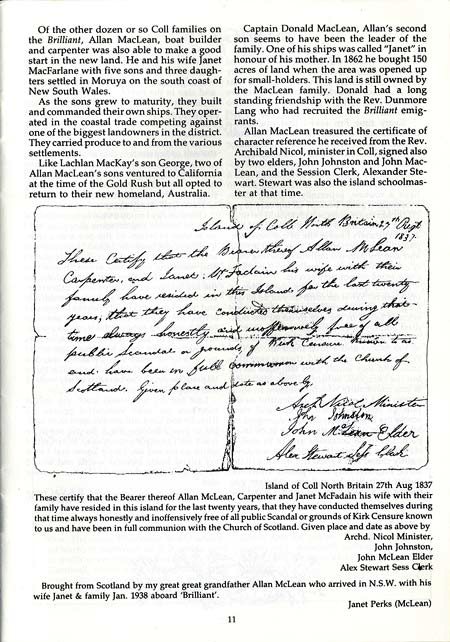 Of the other dozen or so Coll families on
the Brilliant, Allan MacLean, boat builder
and carpenter was also able to make a good
start in the new land. He and his wife Janet
MacFarlane with five sons and three daugh-
ters settled in Moruya on the south coast of
New South Wales.
As the sons grew to maturity, they built
and commanded their own ships. They oper-
ated in the coastal trade competing against
one of the biggest landowners in the district.
They carried produce to and from the various
settlements.
Like Lachlan MacKay's son George, two of
Allan MacLean's sons ventured to California
at the time of the Gold Rush but all opted to
return to their new homeland, Australia.
Captain Donald MacLean, Allan's second
son seems to have been the leader of the
family. One of his ships was called "Janet" in
honour of his mother. In 1862 he bought 150
acres of land when the area was opened up
for small-holders. This land is still owned by
the MacLean family. Donald had a long
standing friendship with the Rev. Dunmore
Lang who had recruited the Brilliant emig-
rants.
Allan MacLean treasured the certificate of
character reference he received from the Rev.
Archibald Nicol, minister in Coll, signed also
by two elders, John Johnston and John Mac-
Lean, and the Session Clerk, Alexander Ste-
wart. Stewart was also the island schoolmas-
ter at that time.
Island of Coll North Britain 27th
1837.
These Certify that the Bearer thereof Allan McLean
Carpenter, and Janet McFadain his wife with their
family have resided in this Island for the last twenty
years, that they have conducted themselves during that
time always honestly and inoffensively free of all
public Scandal or grounds of Kirk Censure known to us
and have been in full communion with the Church of
Scotland. Given place and date as above by
Archd Nicol Minister
Jhn Johnston
John McLean Elder
Alex Stewart Sess Clerk
Island of Coll North Britain 27th Aug 1837
These certify that the Bearer thereof Allan McLean, Carpenter and Janet McFadain his wife with their
family have resided in this island for the last twenty years, that they have conducted themselves during
that time always honestly and inoffensively free of all public Scandal or grounds of Kirk Censure known
to us and have been in full communion with the Church of Scotland. Given place and date as above by
Archd. Nicol Minister,
John Johnston,
John McLean Elder
Alex Stewart Sess Clerk
Brought from Scotland by my great great grandfather Allan McLean who arrived in N.S.W. with his
wife Janet & family Jan. 1938 aboard 'Brilliant'.
Janet Perks (McLean)
11